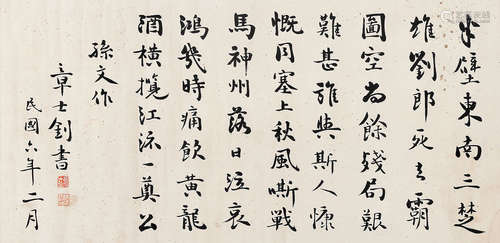 半壁東南三楚
雄劉郎死去霸
圖空尚餘殘局艱
難甚誰與斯人慷
慨同塞上秋風嘶戰
馬神州落日泣哀
鴻幾時痛飲黃龍
酒橫攬江流一奠公
孫文作
章士釗書
民國六年二月